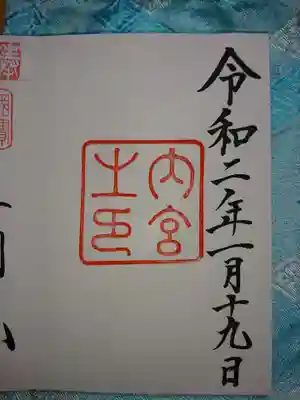 令和二年一月十九日
内宮
之印